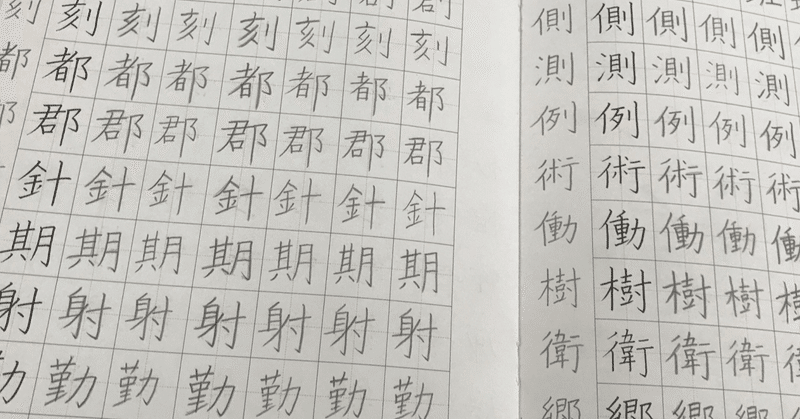 刻 刻 刻 刻 刻 刻 刻 刻
都 都 都 都 都 都 都 都
郡 郡 郡 郡 郡 郡 郡
針 針 針 針 針 針 針
期 期 期 期 期 期 期
射 射 射 射 射 射 射
勤 勤 勤 勤 勤 勤
側 側 側 側 側
測 測 測 測 測
例 例 例 例 例
術 術 術 術 術
働 働 働 働 働
樹 樹 樹 樹 樹
衛 衛 衛 衛 衛
郷 郷 郷 郷